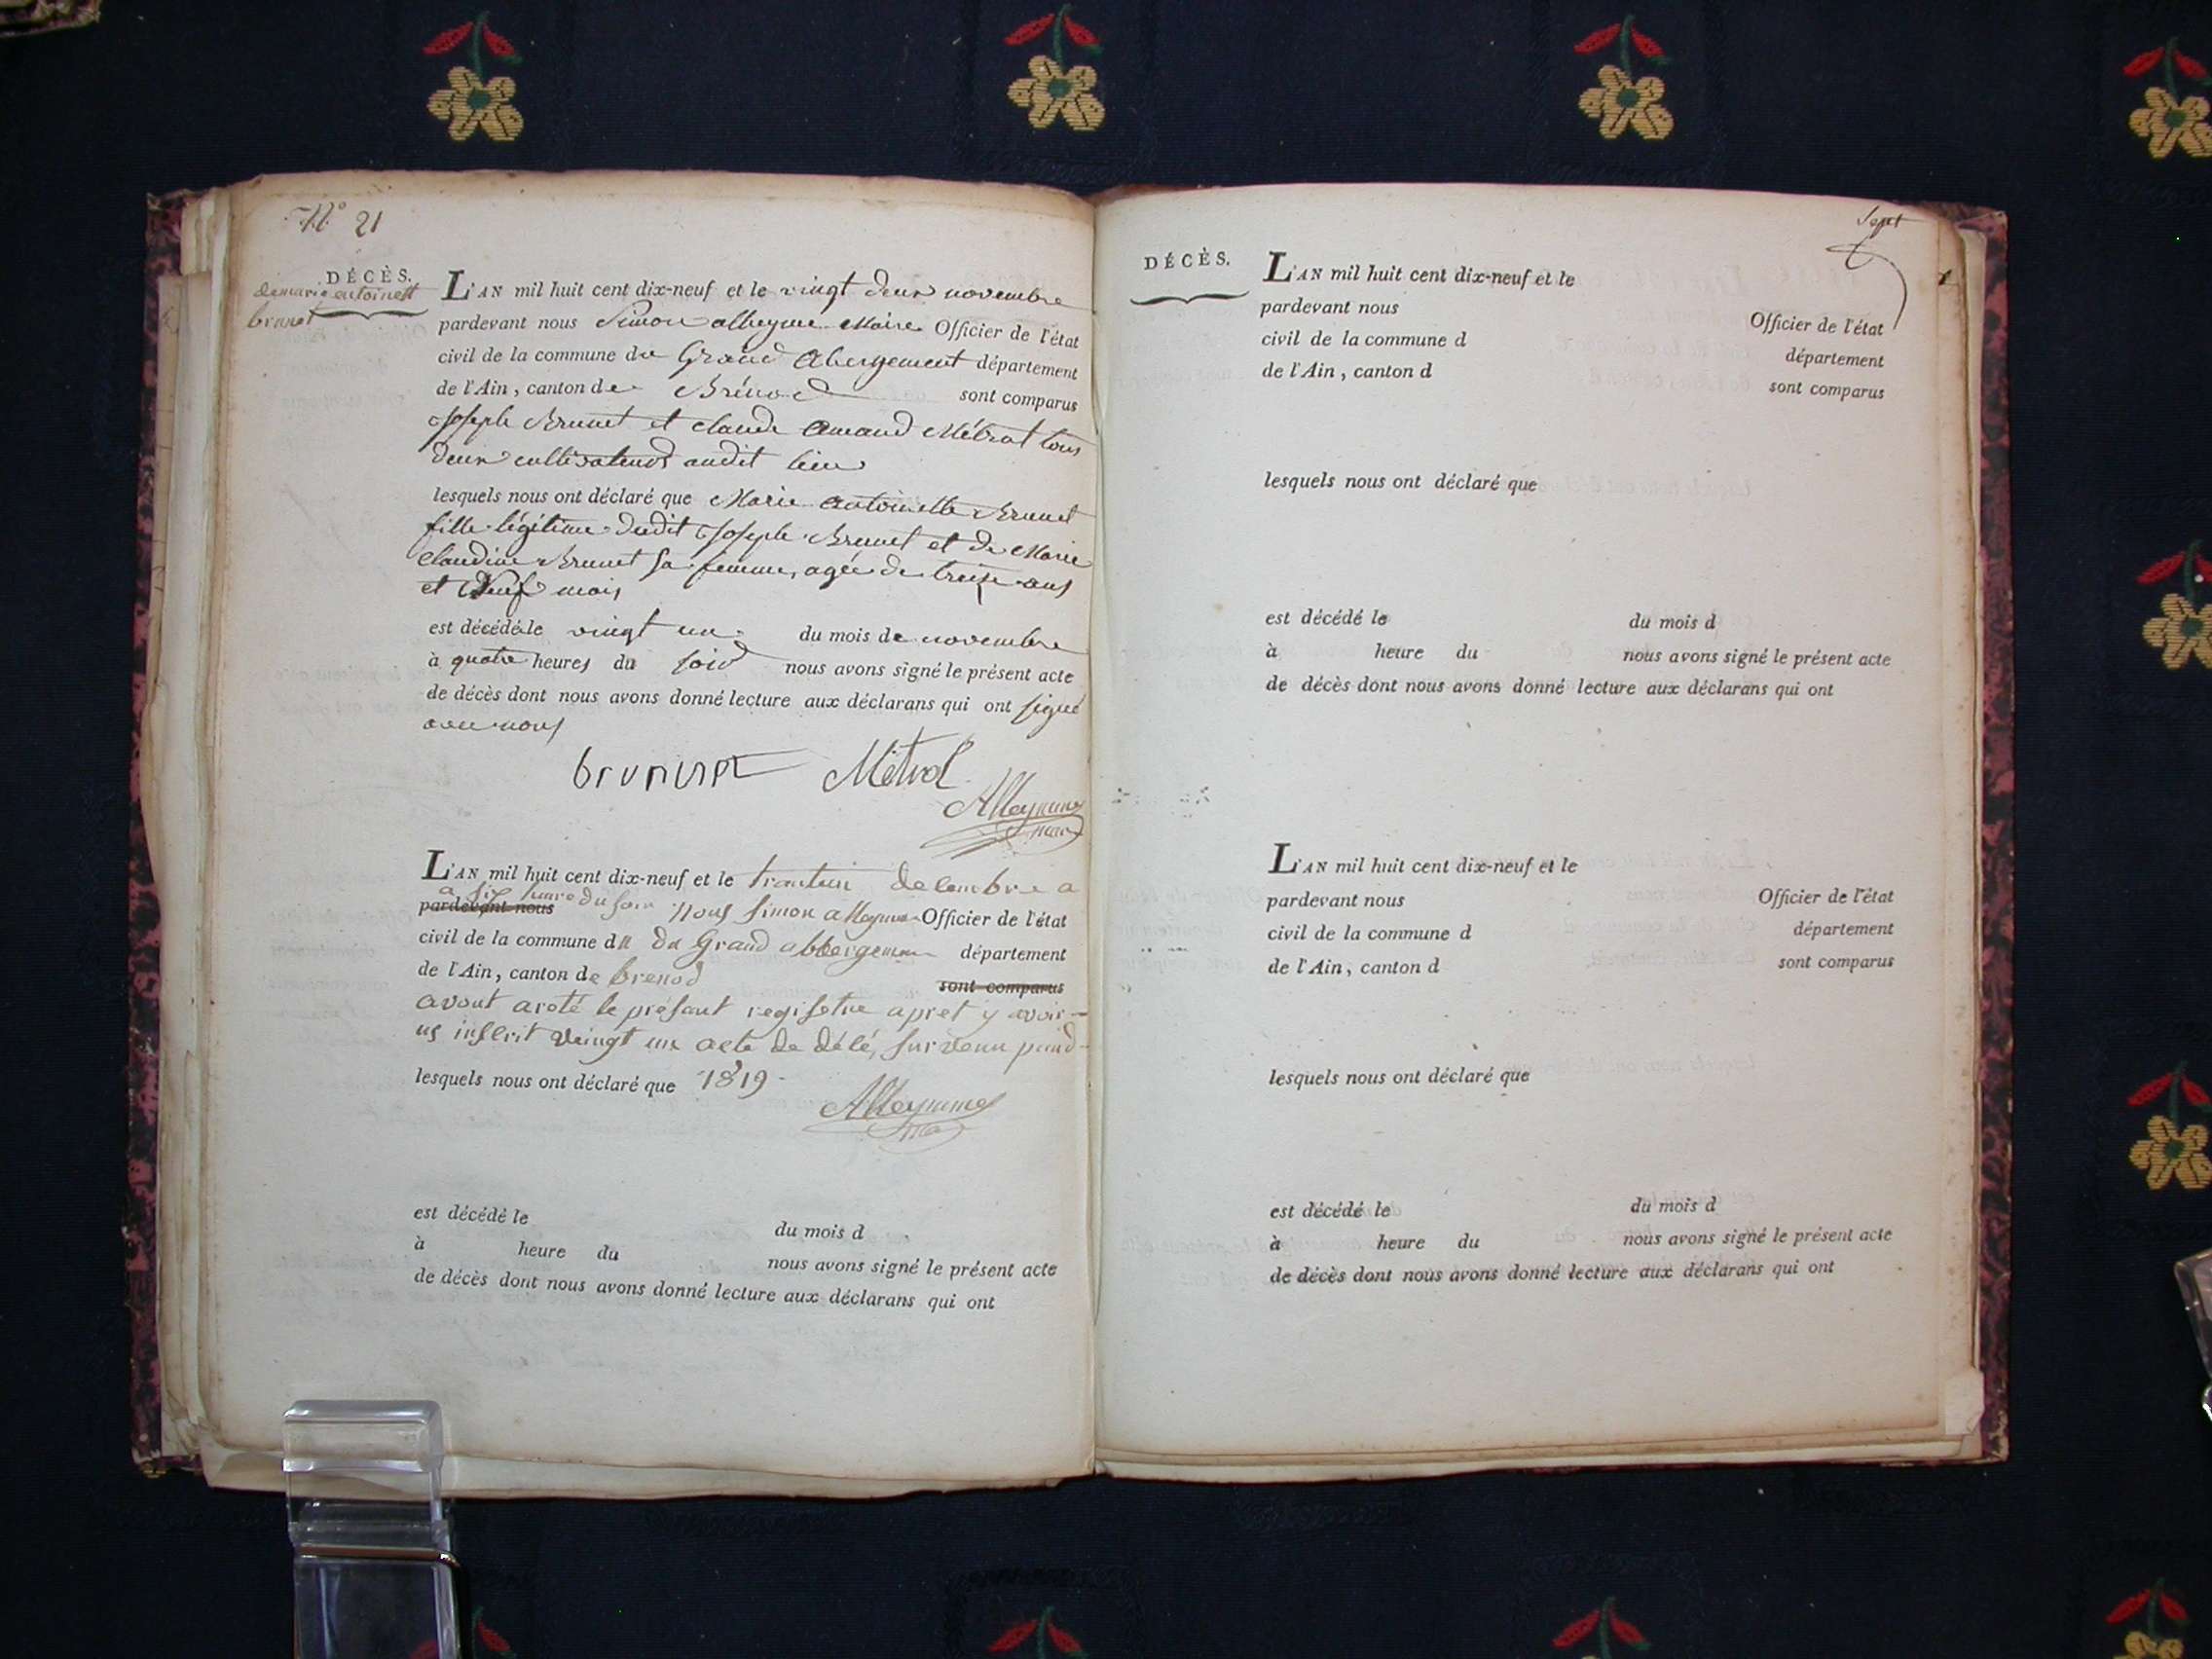 N.º 21
DÉCÈS.
de marie antoinett
brunet
L'AN mil huit cent dix-neuf et le vingt deux novembre
pardevant nous Simon alleyme Maire Officier de l'état
civil de la commune du Grand Abergement département
de l'Ain, canton de Brénod sont comparus
Joseph Brunet et claude Amand Métrat tous
deux cultivateurs audit lieu
lesquels nous ont déclaré que Marie antoinette Brunet
fille légitime dudit Joseph Brunet et de Marie
Claudine Brunet sa femme, agée de treize ans
et Neuf mois
est décédé le vingt un du mois de novembre
à quatre heures du soir nous avons signé le présent acte
de décès dont nous avons donné lecture aux déclarans qui ont signé
avec nous
Métral
Alleyme
L'AN mil huit cent dix-neuf et le trantun decembre a
a six heure du soir
pardevant nous Nous Simon alleyme Officier de l'état
civil de la commune du du Grand abbergemen département
de l'Ain, canton de brenod sont comparus
avont areté le présant registre apret y avoir
us inscrit veingt un acte de décé, survenu pend-
lesquels nous ont déclaré que 1819
Alleyme
est décédé le du mois d
à heure du nous avons signé le présent acte
de décès dont nous avons donné lecture aux déclarans qui ont
Sept
DÉCÈS.
L'AN mil huit cent dix-neuf et le
pardevant nous Officier de l'état
civil de la commune d département
de l'Ain, canton d sont comparus
lesquels nous ont déclaré que
est décédé le du mois d
à heure du nous avons signé le présent acte
de décès dont nous avons donné lecture aux déclarans qui ont
L'AN mil huit cent dix-neuf et le
pardevant nous Officier de l'état
civil de la commune d département
de l'Ain, canton d sont comparus
lesquels nous ont déclaré que
est décédé le du mois d
à heure du nous avons signé le présent acte
de décès dont nous avons donné lecture aux déclarans qui ont